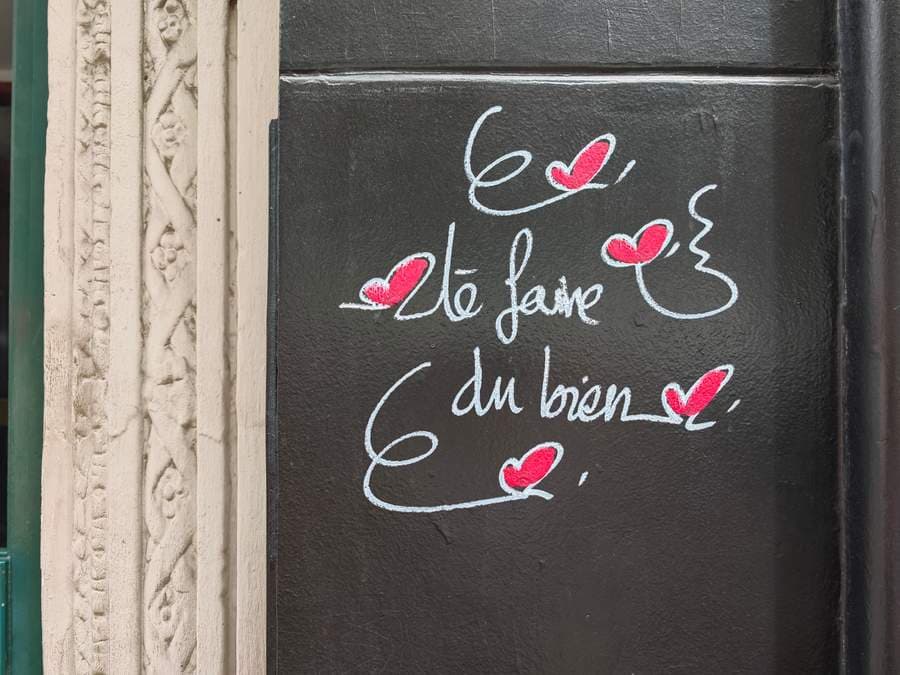 te faire
du bien